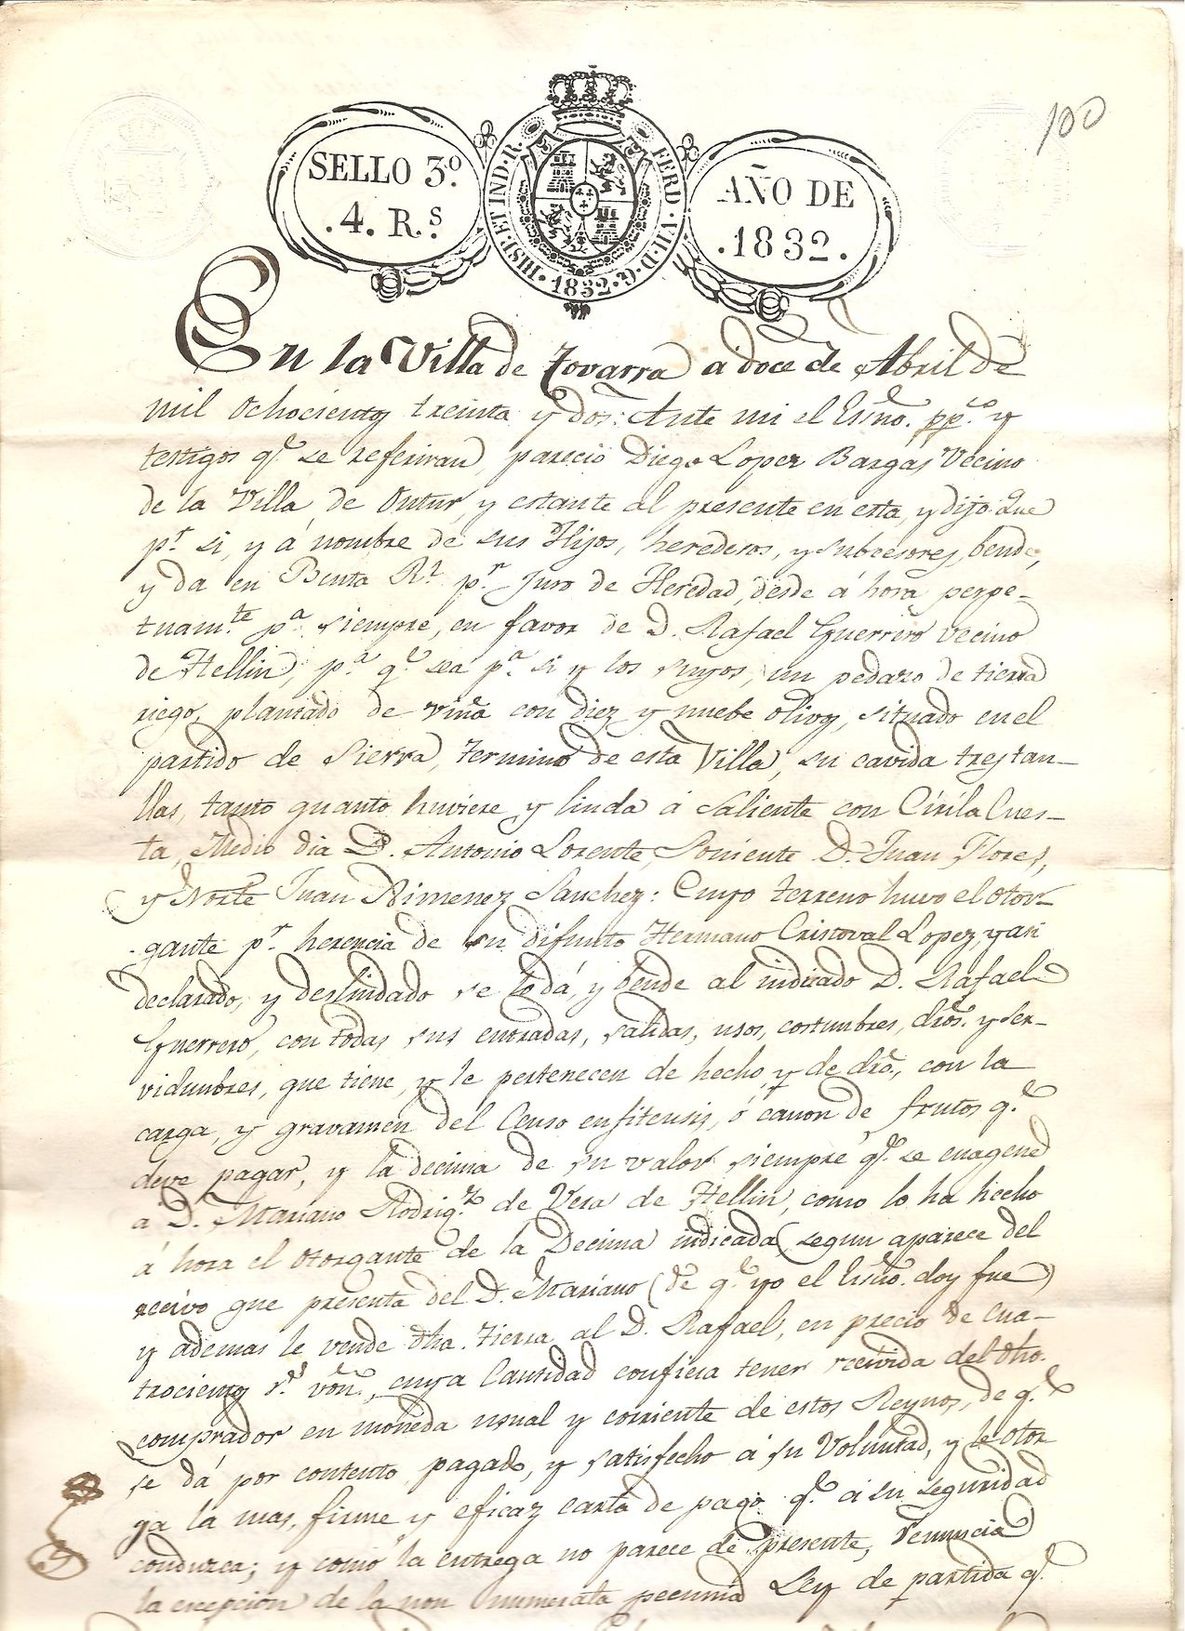 100
SELLO 3º.
.4. R.s
HISP. ET IND. R. FERD. VII. D. G. 1832.
AÑO DE
.1832.
En la Villa de Tovarra a doce de Abril de
mil ochocientos treinta y dos: Ante mi el Esno. ppco. y
testigos q.e se referiran, parecio Diego Lopez Bargas Vecino
de la Villa de Ontur, y estante al presente en esta, y dijo: Que
p.r si, y á nombre de sus Hijos, herederos, y subcesores, bende,
y da en Benta Rl. p.r Juro de Heredad, desde á hora perpe-
tuam.te p.a siempre, en favor de D. Rafael Guerrero vecino
de Hellin, p.a q.e sea p.a si y los suyos, un pedazo de tierra
riego, plantado de viña con diez y nuebe olivos, situado en el
partido de Sierra, termino de esta Villa, su cavida tres tan-
llas, tanto quanto huviere y linda á Saliente con Cirila Cues-
ta, Medio dia D. Antonio Lorente, Poniente D. Juan Flores,
y Norte Juan Ximenez Sanchez: Cuyo terreno huvo el otor-
gante p.r herencia de su difunto Hermano Cristoval Lopez, y asi
declarado, y deslindado se lo dá, y bende al indicado D. Rafael
Guerrero, con todas sus entradas, salidas, usos, costumbres, dros. y ser-
vidumbres, que tiene, y le pertenecen de hecho, y de dro., con la
carga, y gravamen del Censo enfiteusis, ó canon de frutos q.e
deve pagar, y la decima de su valor siempre q.e se enagene
a D. Mariano Rodrig.z de Vera de Hellin, como lo ha hecho
á hora el otorgante de la Decima indicada, segun aparece del
recivo que presenta del D. Mariano (de q.e yo el Esno. doy fue)
y ademas le vende dha. tierra al D. Rafael, en precio de cua-
trocientos r.s von., cuya Cantidad confiesa tener recivida del dho.
comprador en moneda usual y corriente de estos Reynos, de q.e
se dá por contento, pagado, y satisfecho á su Voluntad, y le otor
ga la mas, firme y eficaz carta de pago q.e á su seguridad
conduzca; y como la entrega no parece de presente, renuncia
la excepcion de la non numerata pecunia Ley de partida q.e